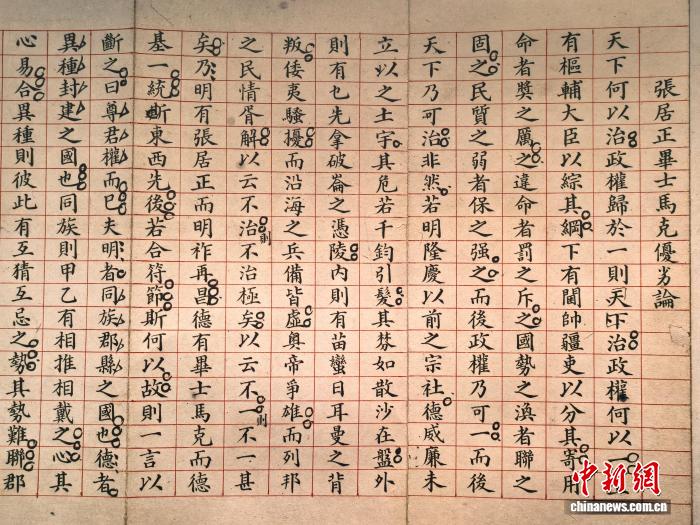 張居正畢士馬克優劣論
天下何以治政權歸於一則天下治政權何以一
有樞輔大臣以綜其綱下有閫帥疆吏以分其寄用
命者獎之厲之違命者罰之斥之國勢之渙者聯之
固之民質之弱者保之强之而後政權乃可一而後
天下乃可治非然若明隆慶以前之宗社德威廉未
立以之土宇其危若千鈞引髮其棼如散沙在盤外
則有乜先拿破崙之憑陵內則有苗蠻日耳曼之背
叛倭夷騷擾而沿海之兵備皆虛奧帝爭雄而列邦
之民情胥解以云不治則不治極矣以云不一則不一甚
矣乃明有張居正而明祚再昌德有畢士馬克而德
基一統斯東西先後若合符節斯何以故則一言以
斷之曰尊君權而已夫明者同族郡縣之國也德者
異種封建之國也同族則甲乙有相推相戴之心其
心易合異種則彼此有互猜互忌之勢其勢難聯郡
中新网
www.chinanews.com
chinanews.com